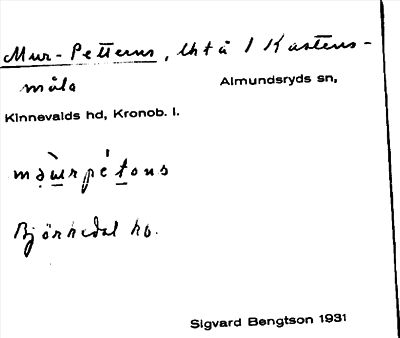 Mur-Petterns, lht å 1 Kastens-
måla Almundsryds sn,
Kinnevalds hd, Kronob. l.
Björkedal ho.
Sigvard Bengtson 1931